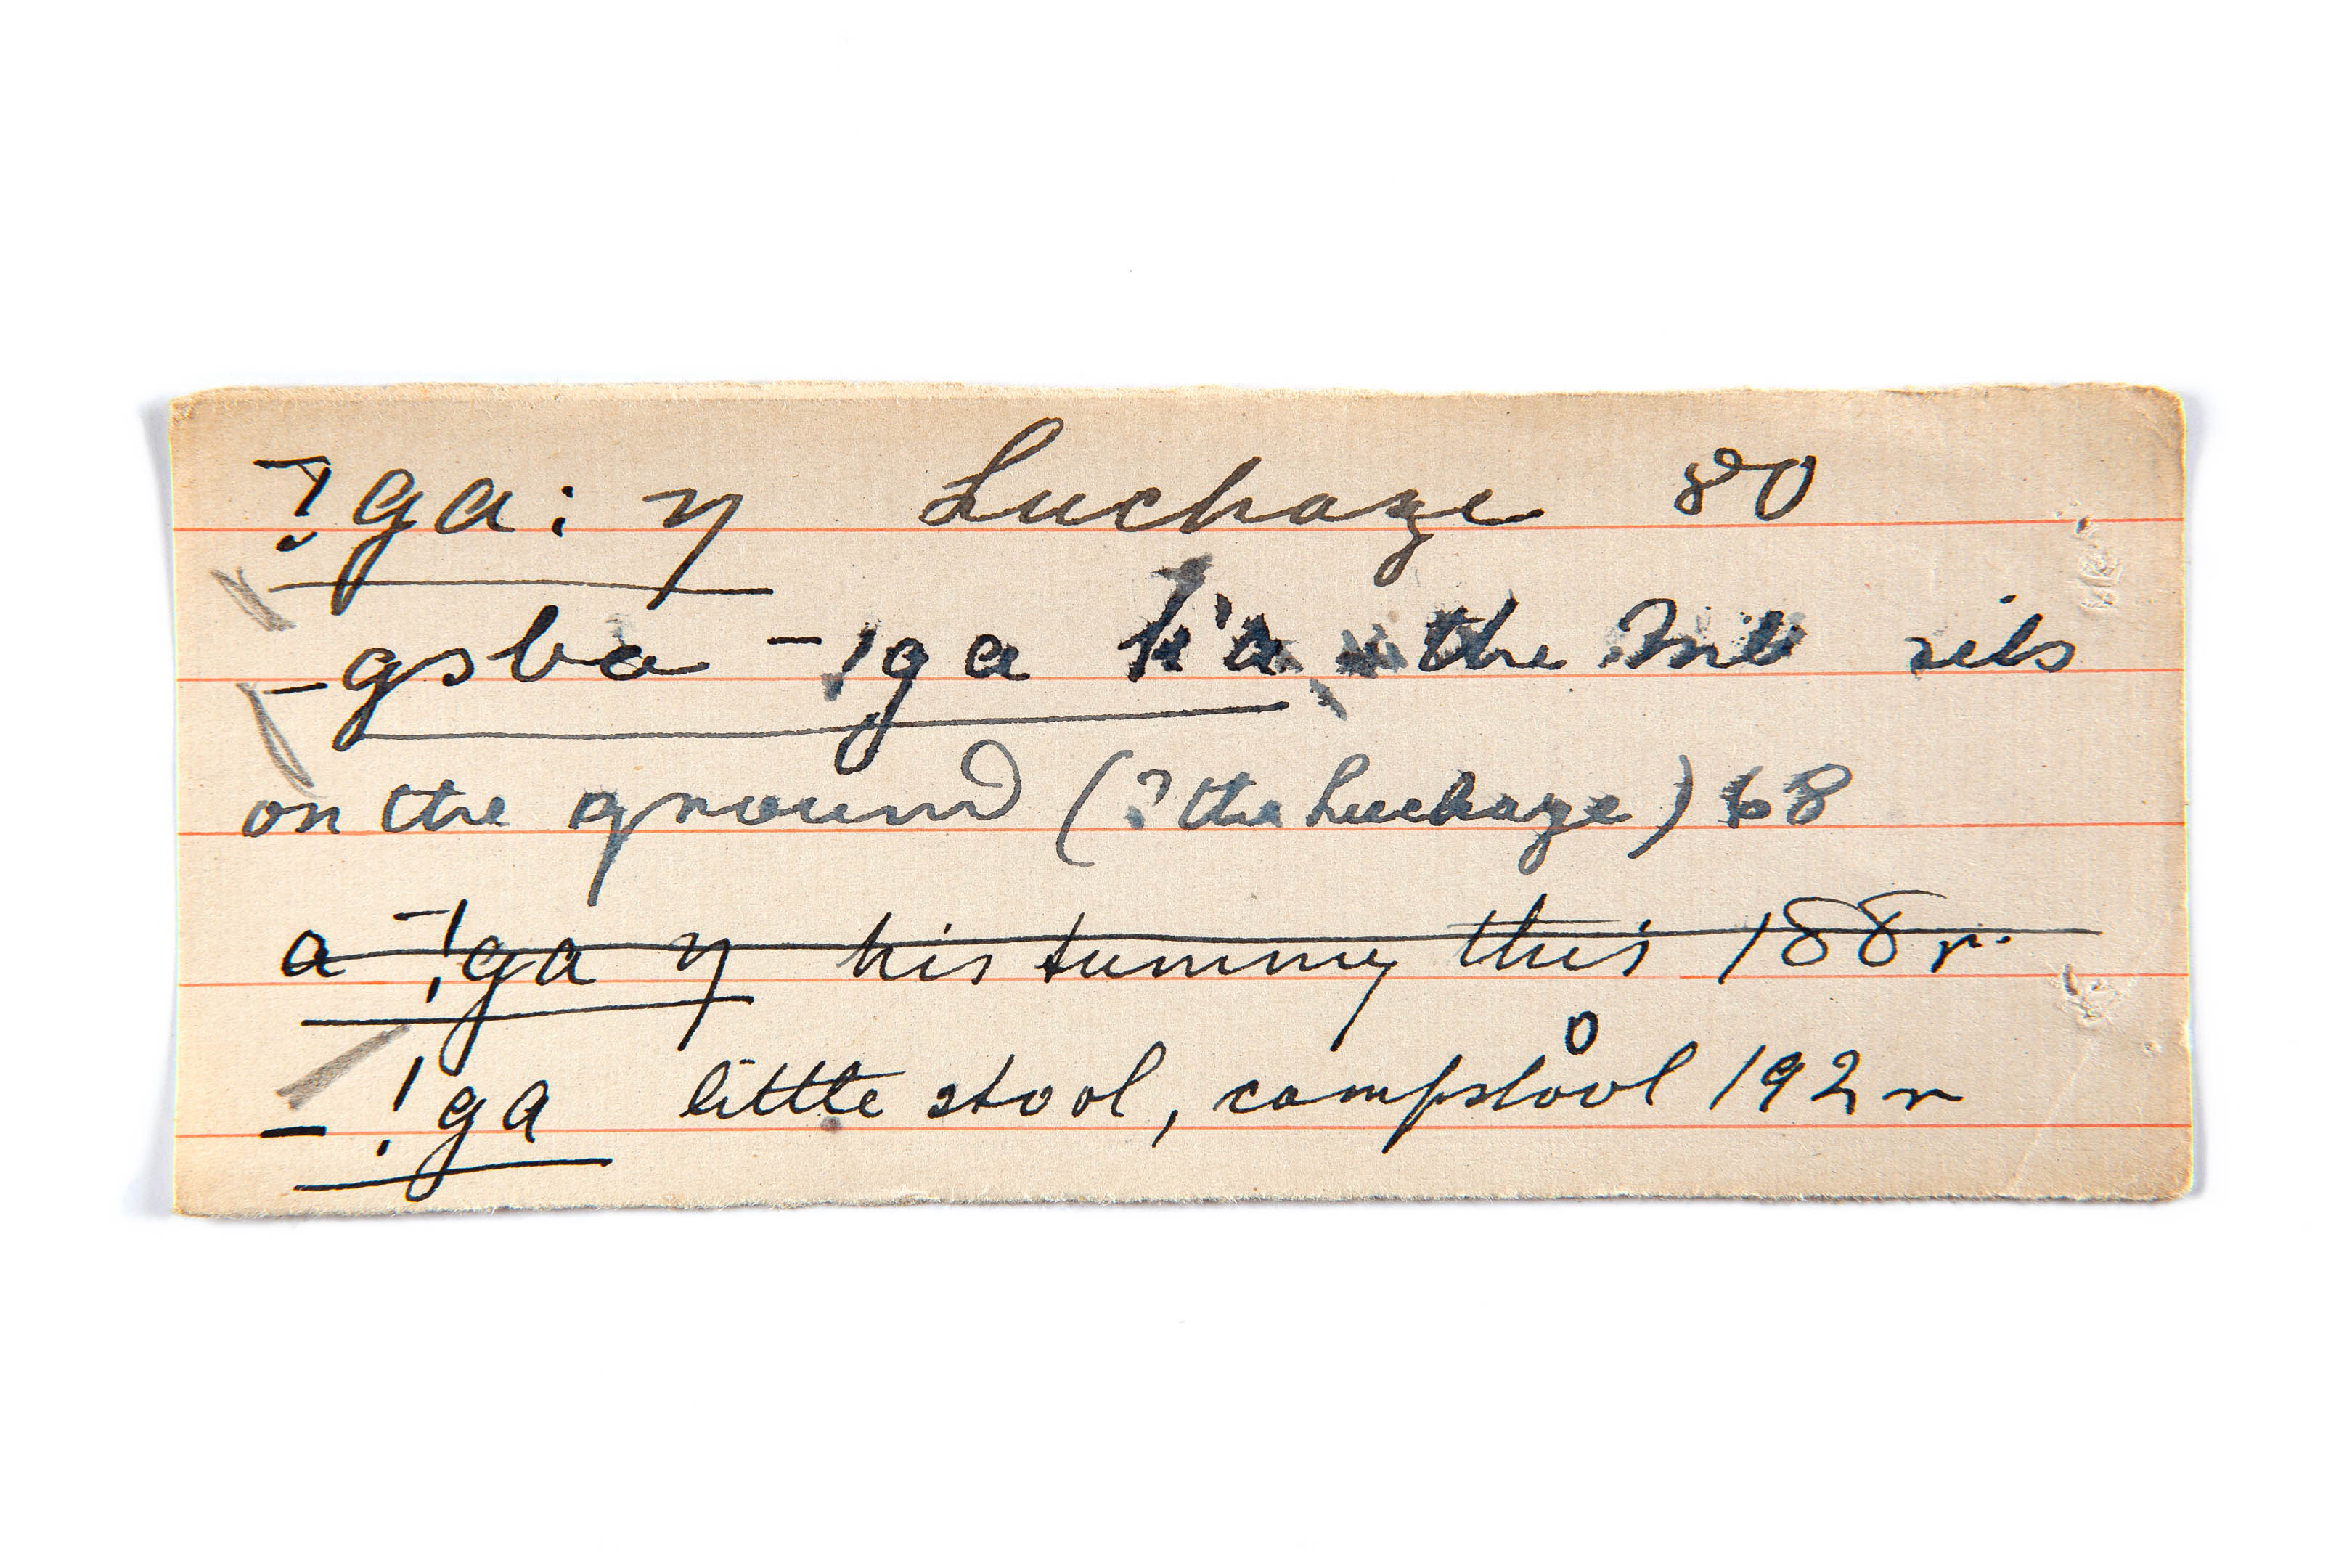 ˉ!ga: ŋ Luchaze 80
- gsba ˉ!ga k'a the sits
on the ground (? the Luchaze) 68
a ˉ!ga ŋ his tummy this 188 r.
- !ga little stool, campstool 192 r